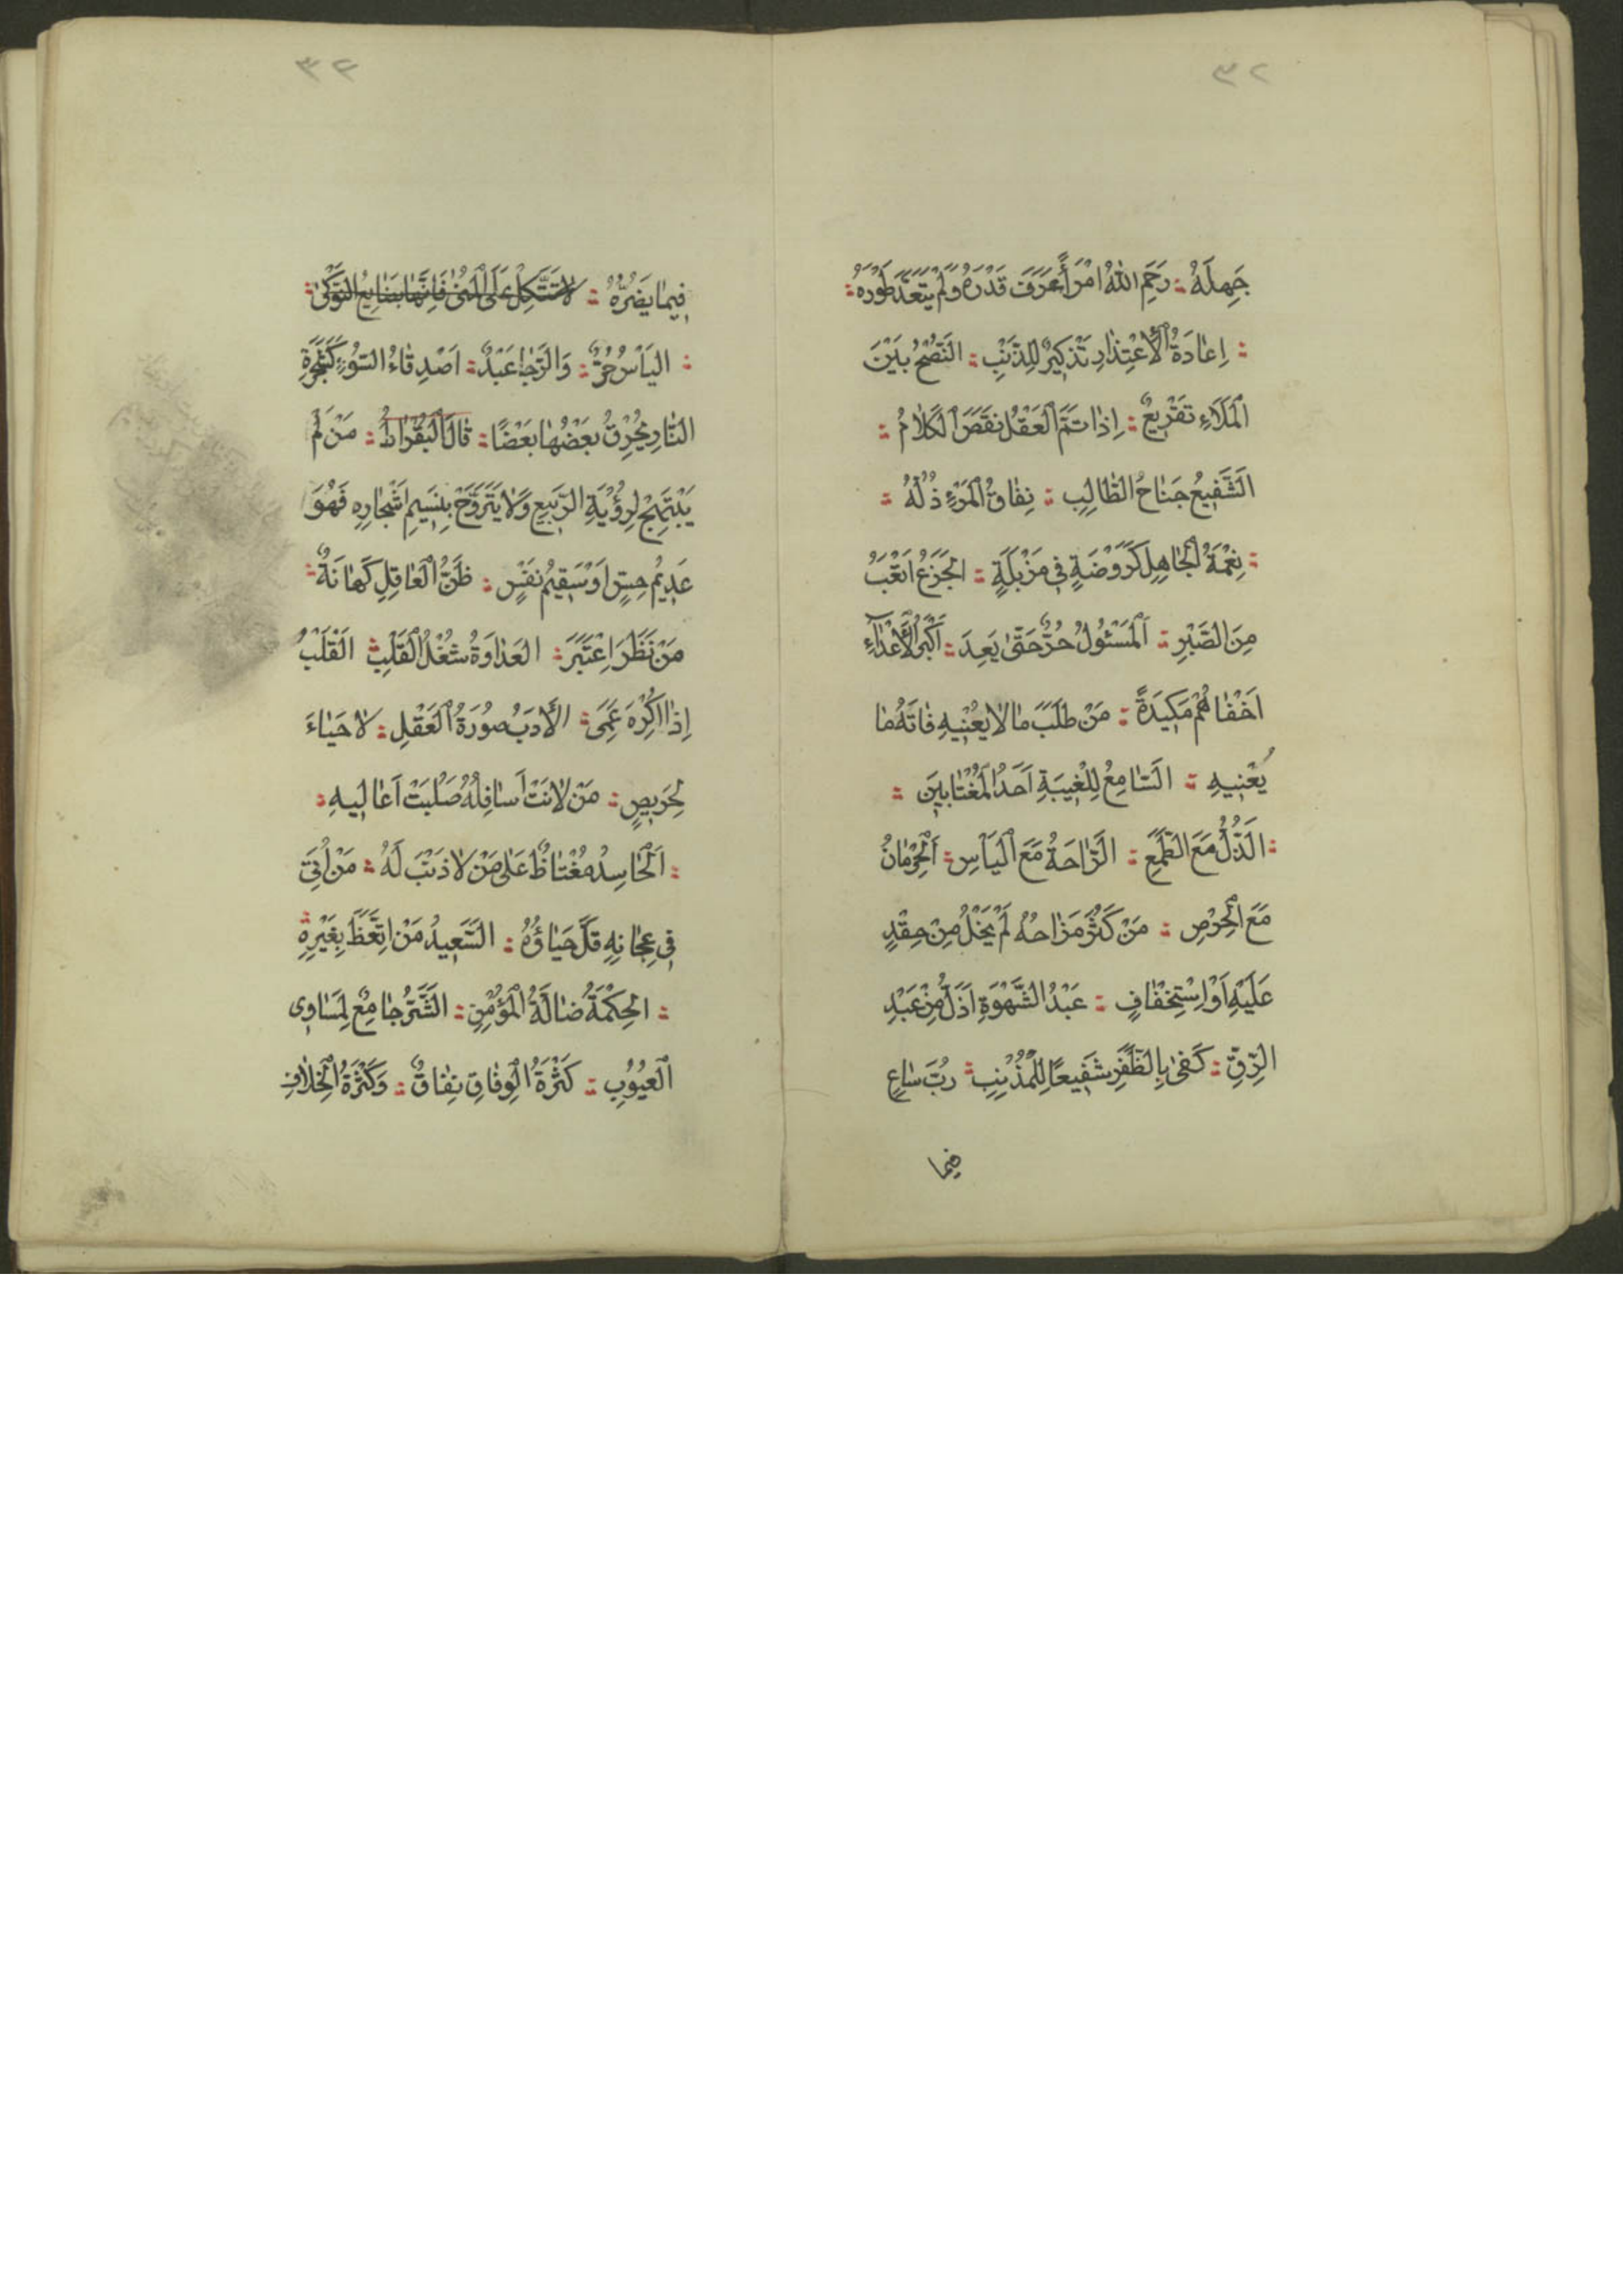 ٣٢
جَهِلَهُ ؞ رَحِمَ اللهُ امْرَأً عَرَفَ قَدْرَهُ وَلَمْ يَتَعَدَّ طَوْرَهُ ؞
؞ اِعَادَةُ الْأِعْتِذَارِ تَذْكِيرٌ لِلذَّنْبِ ؞ النُّصْحُ بَيْنَ
الْمَلَاءِ تَقْرِيعٌ ؞ اِذَا تَمَّ الْعَقْلُ نَقَصَ الْكَلَامُ ؞
الشَّفِيعُ جَنَاحُ الطَّالِبِ ؞ نِفَاقُ الْمَرْءِ ذُلُّهُ ؞
؞ نِعْمَةُ الْجَاهِلِ كَرَوْضَةٍ فِي مَزْبَلَةٍ ؞ الْجَزَعُ اَتْعَبُ
مِنَ الصَّبْرِ ؞ اَلْمَسْئُولُ حُرٌّ حَتَّى يَعِدَ ؞ اَكْبَرُ الْأَعْدَآءِ
اَخْفَاهُمْ مَكِيدَةً ؞ مَنْ طَلَبَ مَا لَا يَعْنِيهِ فَاتَهُ مَا
يُعْنِيهِ ؞ السَّامِعُ لِلْغِيبَةِ اَحَدُ الْمُغْتَابِينَ ؞
؞ الذُّلُّ مَعَ الطَّمَعِ ؞ الرَّاحَةُ مَعَ الْيَأْسِ ؞ اَلْحِرْمَانُ
مَعَ الْحِرْصِ ؞ مَنْ كَثُرَ مَزَاحُهُ لَمْ يَخْلُ مِنْ حِقْدٍ
عَلَيْهِ اَوْ اِسْتِخْفَافٍ ؞ عَبْدُ الشَّهْوَةِ اَذَلُّ مِنْ عَبْدِ
الرِّقِّ ؞ كَفَى بِالظَّفَرِ شَفِيعًا لِلْمُذْنِبِ ؞ رُبَّ سَاعٍ
فيما
٣٤
فِيمَا يَضُرُّهُ ؞ لَا تَتَّكِلْ عَلَى الْمُنٰى فَاِنَّهَا بَضَايِعُ النَّوْكٰى ؞
؞ الْيَأْسُ حُرٌّ ؞ وَالرَّجَا عَبْدٌ ؞ اَصْدِقَاءُ السُّوءِ كَشَجَرَةِ
النَّارِ يُحْرِقُ بَعْضُهَا بَعْضًا ؞ قَالَ الْبُقْرَاطُ ؞ مَنْ لَمْ
يَبْتَهِجْ لِرُؤْيَةِ الرَّبِيعِ وَلَا يَتَرَوَّحْ بِنَسِيمِ اَشْجَارِهِ فَهُوَ
عَدِيمُ حِسٍّ اَوْ سَقِيمُ نَفْسٍ ؞ ظَنُّ الْعَاقِلِ كَهَانَةٌ ؞
مَنْ نَظَرَ اِعْتَبَرَ ؞ الْعَدَاوَةُ شُغْلُ الْقَلْبِ ؞ الْقَلْبُ
اِذَا اُكْرِهَ عَمِىَ ؞ الْأَدَبُ صُورَةُ الْعَقْلِ ؞ لَا حَيَاءَ
لِحَرِيصٍ ؞ مَنْ لَانَتْ اَسَافِلُهُ صَلُبَتْ اَعَالِيهِ ؞
؞ اَلْحَاسِدُ مُغْتَاظٌ عَلَى مَنْ لَا ذَنْبَ لَهُ ؞ مَنْ اُتِىَ
فِى عِجَانِهِ قَلَّ حَيَاؤُهُ ؞ السَّعِيدُ مَنِ اتَّعَظَ بِغَيْرِهِ ؞
؞ الْحِكْمَةُ ضَالَّةُ الْمُؤْمِنِ ؞ الشَّرُّ جَامِعٌ لِمَسَاوِى
الْعُيُوبِ ؞ كَثْرَةُ الْوِفَاقِ نِفَاقٌ ؞ وَكَثْرَةُ الْخِلَافِ